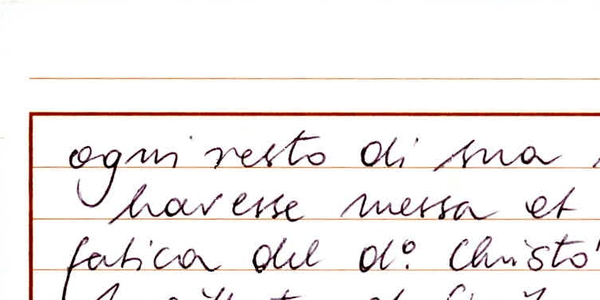 ogni resto di sua
havesse messa et
fatica del d.º Christo